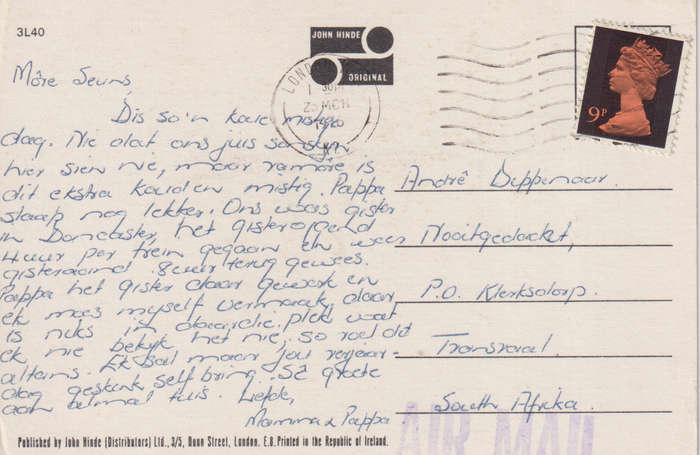 3L40
JOHN HINDE
ORIGINAL
LONDON
9P
Môre Seuns,
Dis so'n koue mistige
dag. Nie dat ons juis sonskyn
hier sien nie, maar vanmôre is
dit ekstra koud en mistig. Pappa
slaap nog lekker. Ons was gister
in Doncaster, het gisteroggend
4 uur per trein gegaan en weer
gisteraand 8 uur terug gewees.
Pappa het gister daar gewerk en
ek moes myself vermaak, daar
is niks in daardie plek wat
ek nie bekyk het nie, so voel dit
altans. Ek sal maar jou verjaar-
dag geskenk self bring. Sê groete
aan almal tuis. Liefde,
Mamma & Pappa
André Dippenaar.
Nooitgedacht,
P.O. Klerksdorp.
Transvaal.
South Afrika.
AIR MAIL
Published by John Hinde (Distributors) Ltd., 3/5, Dunn Street, London, E.8. Printed in the Republic of Ireland.